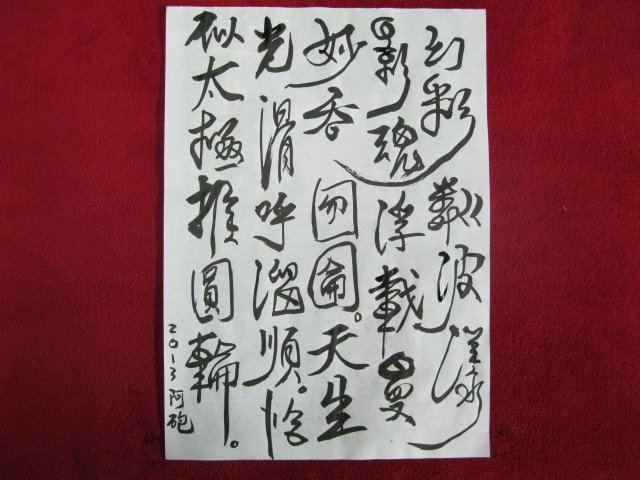 幻彩粼波
影魂浮載曼
妙吞囫圇。天生
光滑呼溜順。恰
似太極推圓輪。
2013阿砲